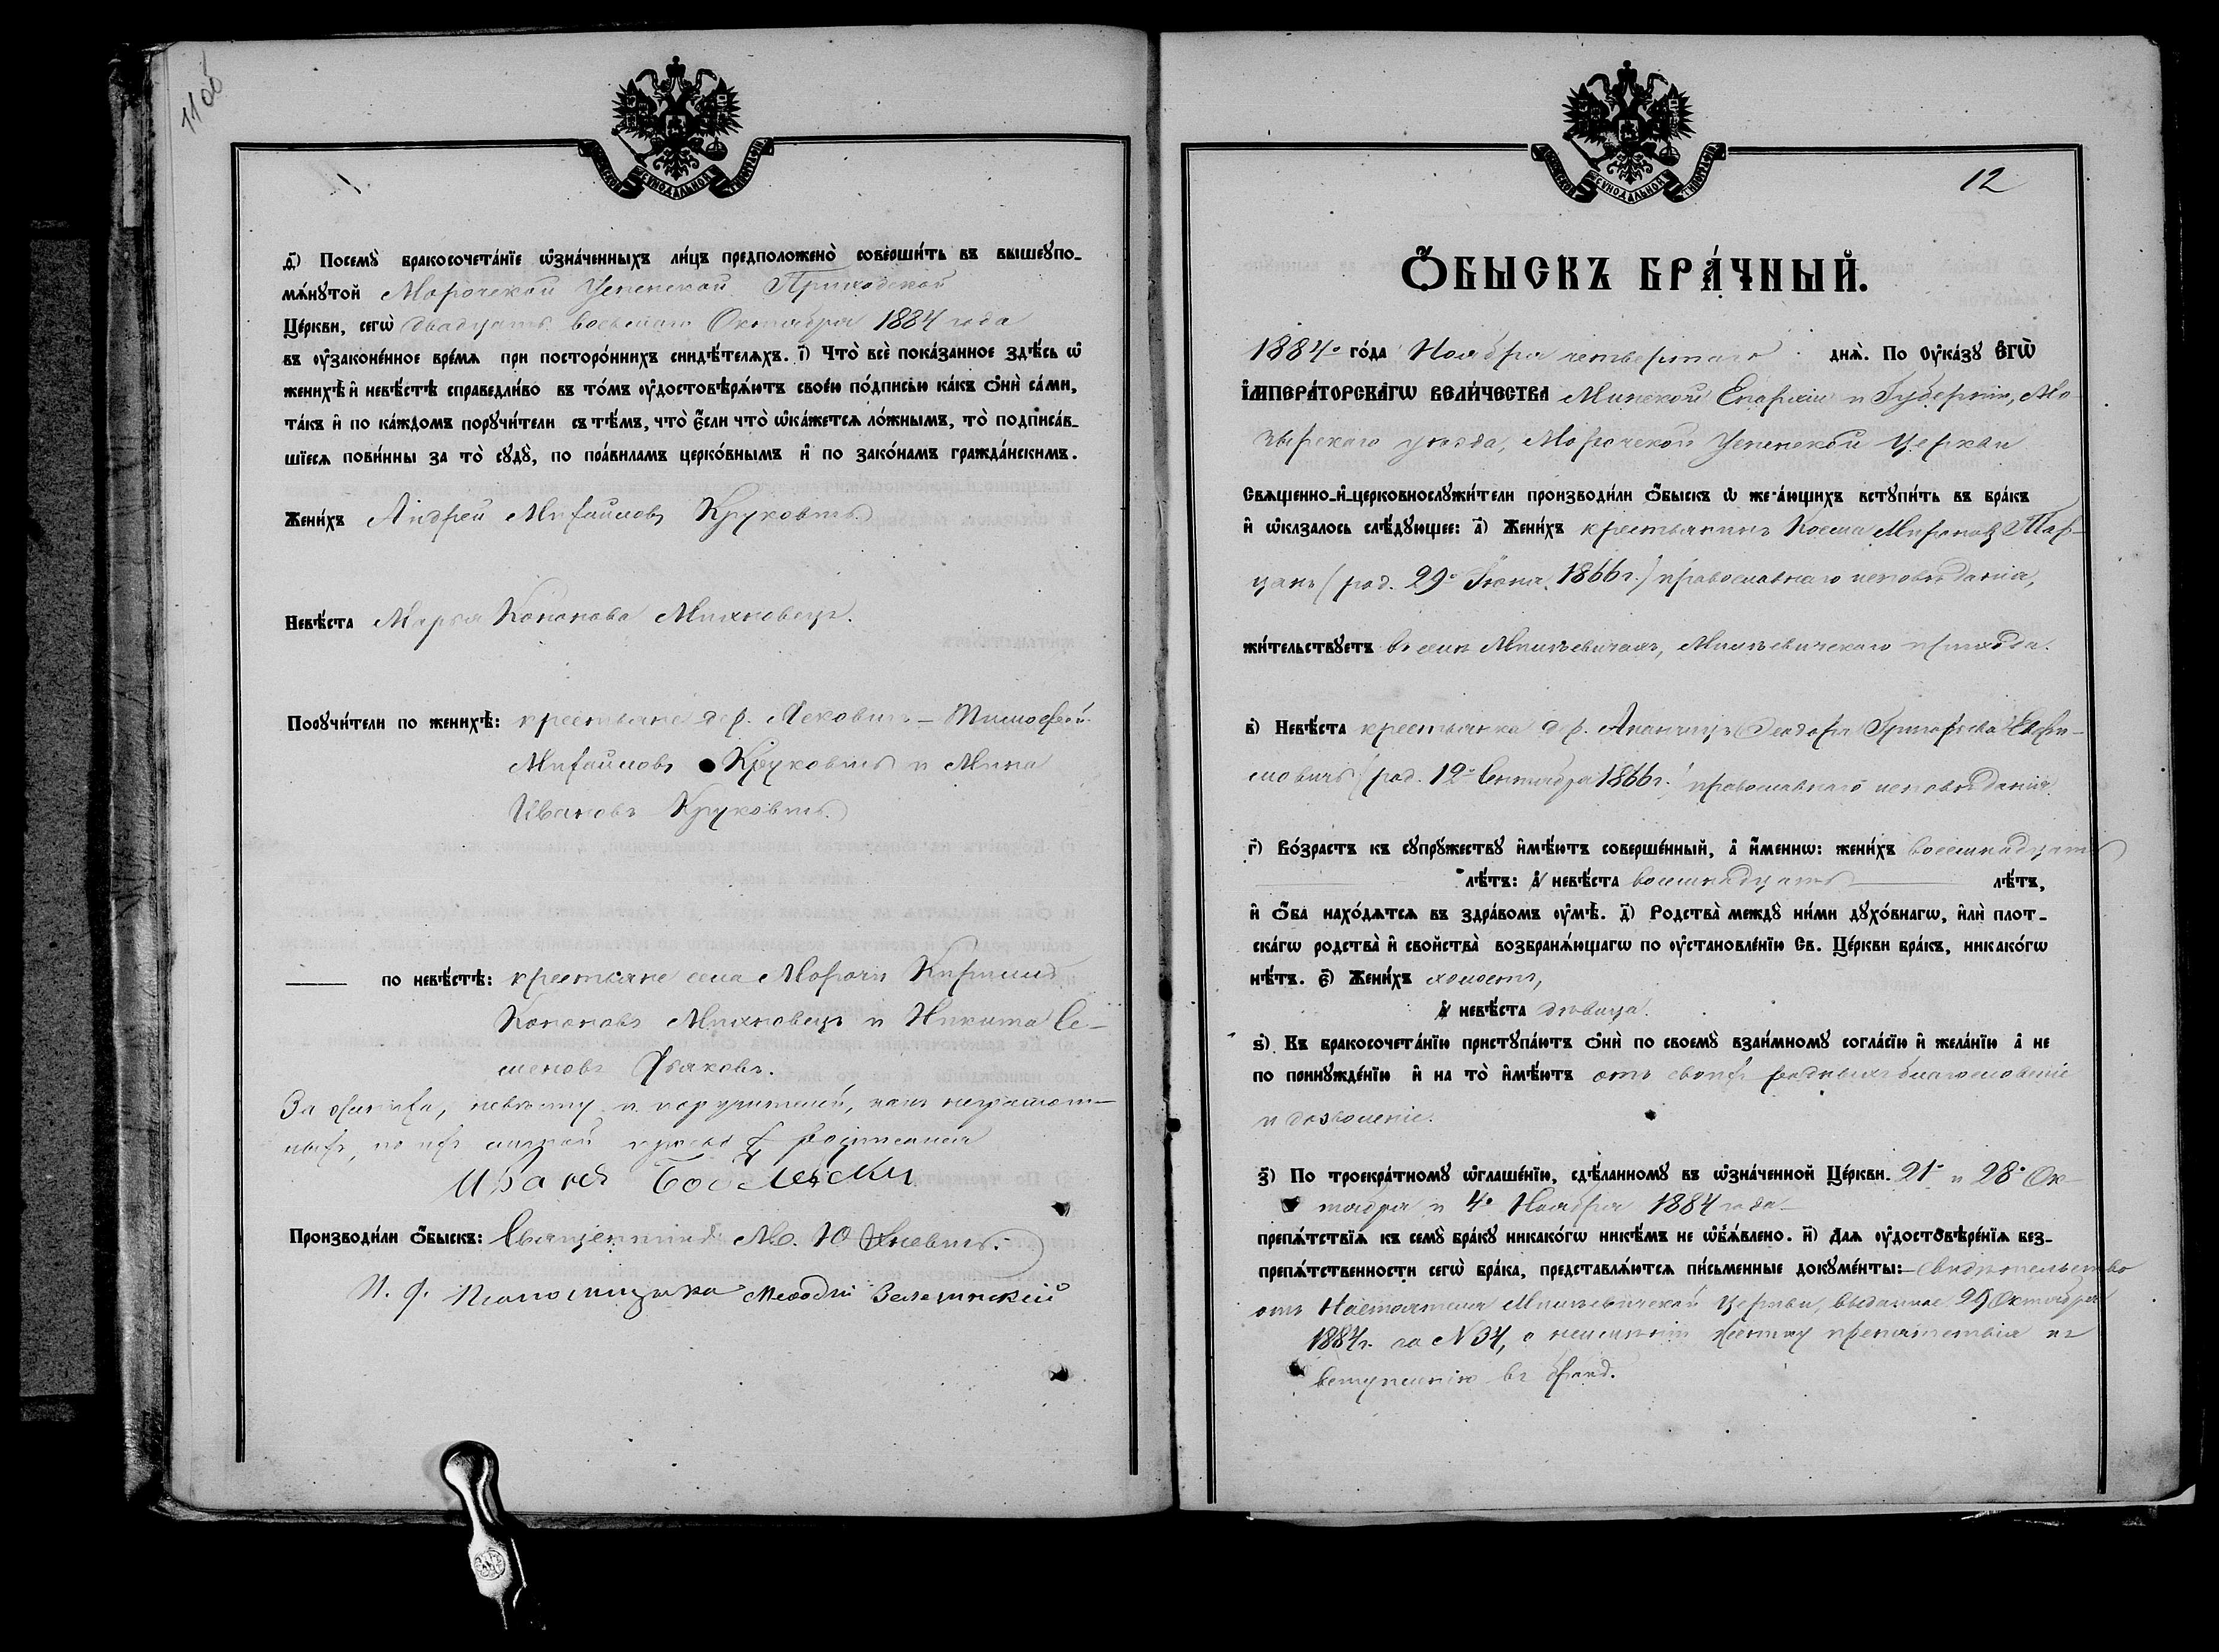 11об
СѴНОДАЛЬНОЙ
ѳ҃) Посемꙋ̀ бракосочета́нїе ѡ҆зна́ченныхъ ли́цъ предположено̀ соверши́ть въ вышеꙋпо-
мѧ́нꙋтой Морочской Успенской Приходской
Це́ркви, сегѡ̀ двадцать восьмаго Октября 1884 года
въ ᲂу҆зако́ненное вре́мѧ при посторо́ннихъ свидѣ́телѧхъ. і҃) Что̀ всѐ пока́занное здѣ́сь ѡ҆
женихѣ̀ и҆ невѣ́стѣ справедли́во въ то́мъ ᲂу҆достовѣрѧ́ютъ свое́ю по́дписью ка́къ ѻ҆нѝ са́ми,
та́къ и҆ по ка́ждомъ порꙋчи́тели съ тѣ́мъ, что̀ є҆́сли что̀ ѡ҆ка́жетсѧ ло́жнымъ, то̀ подписа́в-
шїесѧ пови́нны за то̀ сꙋдꙋ̀, по пра́виламъ церко́внымъ и҆ по зако́намъ гражда́нскимъ.
Жени́хъ Андрей Михайловъ Круковичъ
Невѣ́ста Марья Кононова Михновецъ.
Порꙋчи́тели по женихѣ̀: крестьяне дер. Лековичъ – Тимофей
Михайловъ Круковичъ и Мина
Ивановъ Круковичъ.
по невѣ́стѣ: крестьяне села Морочи Кириллъ
Кононовъ Михновецъ и Никита Се-
меновъ Дьяковъ.
За жениха, невѣсту и поручителей, какъ неграмот-
ныхъ, по ихъ личной просьбѣ росписался
Иванъ
Производи́ли ѻ҆́быскъ: Священникъ
И. д. Псаломщика Меѳодій
12
СѴНОДАЛЬНОЙ
Ѻ҆́БЫСКЪ БРА́ЧНЫЙ.
1884го го́да Ноября четвертаго днѧ̀. По Оу҆ка́зꙋ Є҆ГѠ̀
І҆МПЕРА́ТОРСКАГѠ ВЕЛИ́ЧЕСТВА Минской Епархіи и Губерніи, Мо-
зырскаго уѣзда, Морочской Успенской церкви
Свѧще́нно-и҆-церковнослꙋжи́тели производи́ли ѻ҆́быскъ ѡ҆ жела́ющихъ встꙋпи́ть въ бра́къ
и҆ ѡ҆казалось слѣ́дꙋющее: а҃) Жени́хъ крестьянинъ Косма Мироновъ Тар-
цанъ (род. 29го Іюня 1866 г.) православнаго исповѣданія,
жи́тельствꙋетъ въ селѣ Милевичахъ, Милевичскаго прихода.
в҃) Невѣ́ста крестьянка дер. Ананчицъ Ѳеодора Григорьева Ефи-
мовичъ (род. 12го Сентября 1866 г.) православнаго исповѣданія.
г҃) Во́зрастъ къ сꙋпрꙋ́жествꙋ и҆мѣ́ютъ соверше́нный, а҆ и҆́менно: жени́хъ восемнадцать
лѣ́тъ: а҆ невѣ́ста восемнадцать лѣ́тъ,
и҆ ѻ҆́ба нахо́дѧтсѧ въ здра́вомъ ᲂу҆мѣ̀. д҃) Родства̀ междꙋ ни́ми дꙋхо́внагѡ, и҆лѝ плот-
ска́гѡ родства̀ и҆ свойства̀ возбранѧ́ющагѡ по ᲂу҆становле́нїю Св. Це́ркви бра́къ, никако́гѡ
нѣ́тъ. є҃) Жени́хъ холостъ,
а҆ невѣ́ста дѣвица.
ѕ҃) Къ бракосочета́нїю пристꙋпа́ютъ ѻ҆нѝ по своемꙋ̀ взаи́мномꙋ согла́сїю и҆ жела́нїю а҆ не
по принꙋжде́нїю и҆ на то̀ и҆мѣ́ютъ отъ своихъ родныхъ благословеніе
и дозволеніе.
з҃) По троекра́тномꙋ ѡ҆глаше́нїю, сдѣ́ланномꙋ въ ѡ҆зна́ченной Це́ркви. 21го и 28го Ок-
тября и 4го Ноября 1884 года
препѧ́тствїѧ къ семꙋ̀ бра́кꙋ никако́гѡ никѣ́мъ не ѡ҆б̾ѧ́влено. и҃) Длѧ ᲂу҆достовѣре́нїѧ без-
препѧ́тственности сегѡ̀ бра́ка, представлѧ́ютсѧ пи́сьменные докꙋме́нты: свидѣтельство
отъ Настоятеля Милевичской церкви, выданное 29 Октября
1884 г. за №34, о неимѣніи жениху препятствія къ
вступленію въ бракъ.